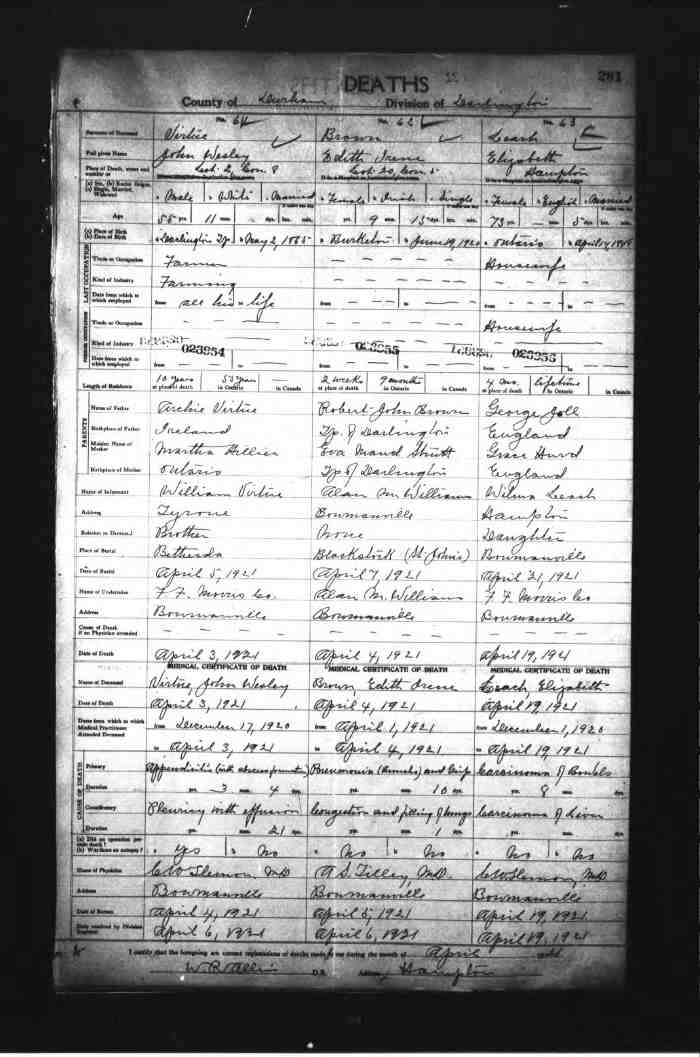 DEATHS 281
County of Durham, Division of Darlington
No. 61 No. 62 No. 63
Surname of Deceased Virtue Brown Leach
Full given Name John Wesley Edith Irene Elizabeth
Place of Death, street and number or Lot 2, Con. 8 Lot 20, Con. Hampton
(a) Sex, (b) Racial Origin, (c) Single, Married, Widowed Male White Married Female Irish Single Female English Married
Age 55 yr. 11 mos. yr. 9 mos. 15 dys. 73 yr. mos. 5 dys.
(a) Place of Birth (b) Date of Birth Darlington Tp May 2, 1865 Burketon June 19, 1920 Ontario April 14,
LAST OCCUPATION
Trade or Occupation Farmer — — — — Housewife
Kind of Industry Farming — — — —
Date from which to which employed from all his life from — — to — — from — — to — —
Trade or Occupation — — — — Housewife
Kind of Industry 023954 023955 023956
Date from which to which employed from — — to — — from — — to — — from — — to — —
Length of Residence 10 years at place of death 55 years in Ontario in Canada 2 weeks at place of death 9 months in Ontario in Canada 4 mo. at place of death lifetime in Ontario in Canada
PARENTS
Name of Father Archie Virtue Robert John Brown George Joll
Birthplace of Father Ireland Tp. of Darlington England
Maiden Name of Mother Martha Hillier Eva Maud Strutt Grace Hurd
Birthplace of Mother Ontario Tp of Darlington England
Name of Informant William Virtue Alan M. Williams Wilma Leach
Address Tyrone Bowmanville Hampton
Relation to Deceased Brother None Daughter
Place of Burial Bethesda Blackstock (St. John's) Bowmanville
Date of Burial April 5, 1921 April 7, 1921 April 21, 1921
Name of Undertaker F. F. Morris Co. Alan M. Williams F. F. Morris Co
Address Bowmanville Bowmanville Bowmanville
Cause of Death if no Physician attended — — — —
Date of Death April 3, 1921 April 4, 1921 April 19, 1921
MEDICAL CERTIFICATE OF DEATH MEDICAL CERTIFICATE OF DEATH MEDICAL CERTIFICATE OF DEATH
Name of Deceased Virtue, John Wesley Brown, Edith Irene Leach, Elizabeth
Date of Death April 3, 1921 April 4, 1921 April 19, 1921
Dates from which to which Medical Practitioner Attended Deceased from December 17, 1920 from April 1, 1921 from December 1, 1920
to April 3, 1921 to April 4, 1921 to April 19, 1921
CAUSE OF DEATH
Primary Appendicitis (with abscess formation) Pneumonia and Grip Carcinoma of Bowels
Duration yrs. 3 mos. 4 dys. yrs. mos. 10 dys. yrs. 8 mos. dys.
Contributory Pleurisy with effusion Congestion and filling of lungs Carcinoma of Liver
Duration 21 dys. yrs. mos. 1 dys. yrs. mos. dys.
(a) Did an operation precede death? (b) Was there an autopsy? Yes No No No No No
Name of Physician C W Slemon, MD A S Tilley, MD. C W Slemon, MD
Address Bowmanville Bowmanville Bowmanville
Date of Return April 4, 1921 April 5, 1921 April 19, 1921
Date received by Division Registrar April 6, 1921 April 6, 1921 April 19, 1921
I certify that the foregoing are correct registrations of deaths made to me during the month of April
W. R. Allin D.R. Address Hampton